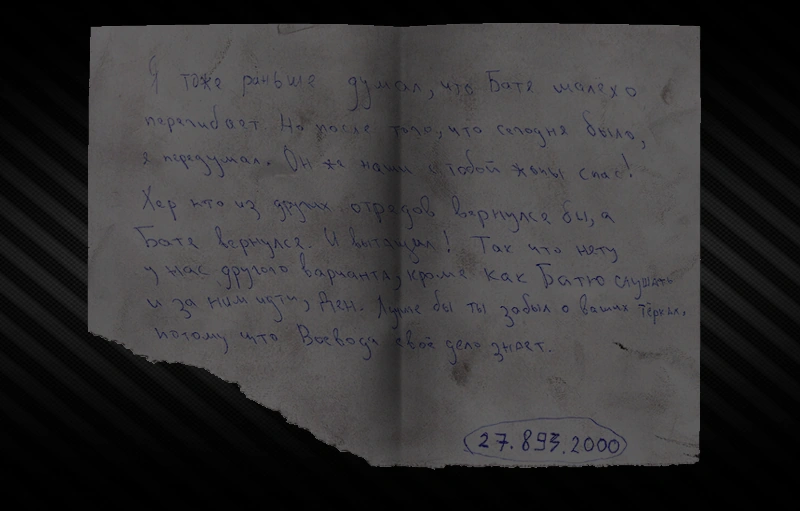 Я тоже раньше думал, что Батя малехо
перегибает. Но после того, что сегодня было,
я передумал. Он же наши с тобой жопы спас!
Хер кто из других отрядов вернулся бы, а
Батя вернулся. И вытащил! Так что нету
у нас другого варианта, кроме как Батю слушать
и за ним идти, Ден. Лучше бы ты забыл о ваших тёрках,
потому что Воевода своё дело знает.
27.893.2000